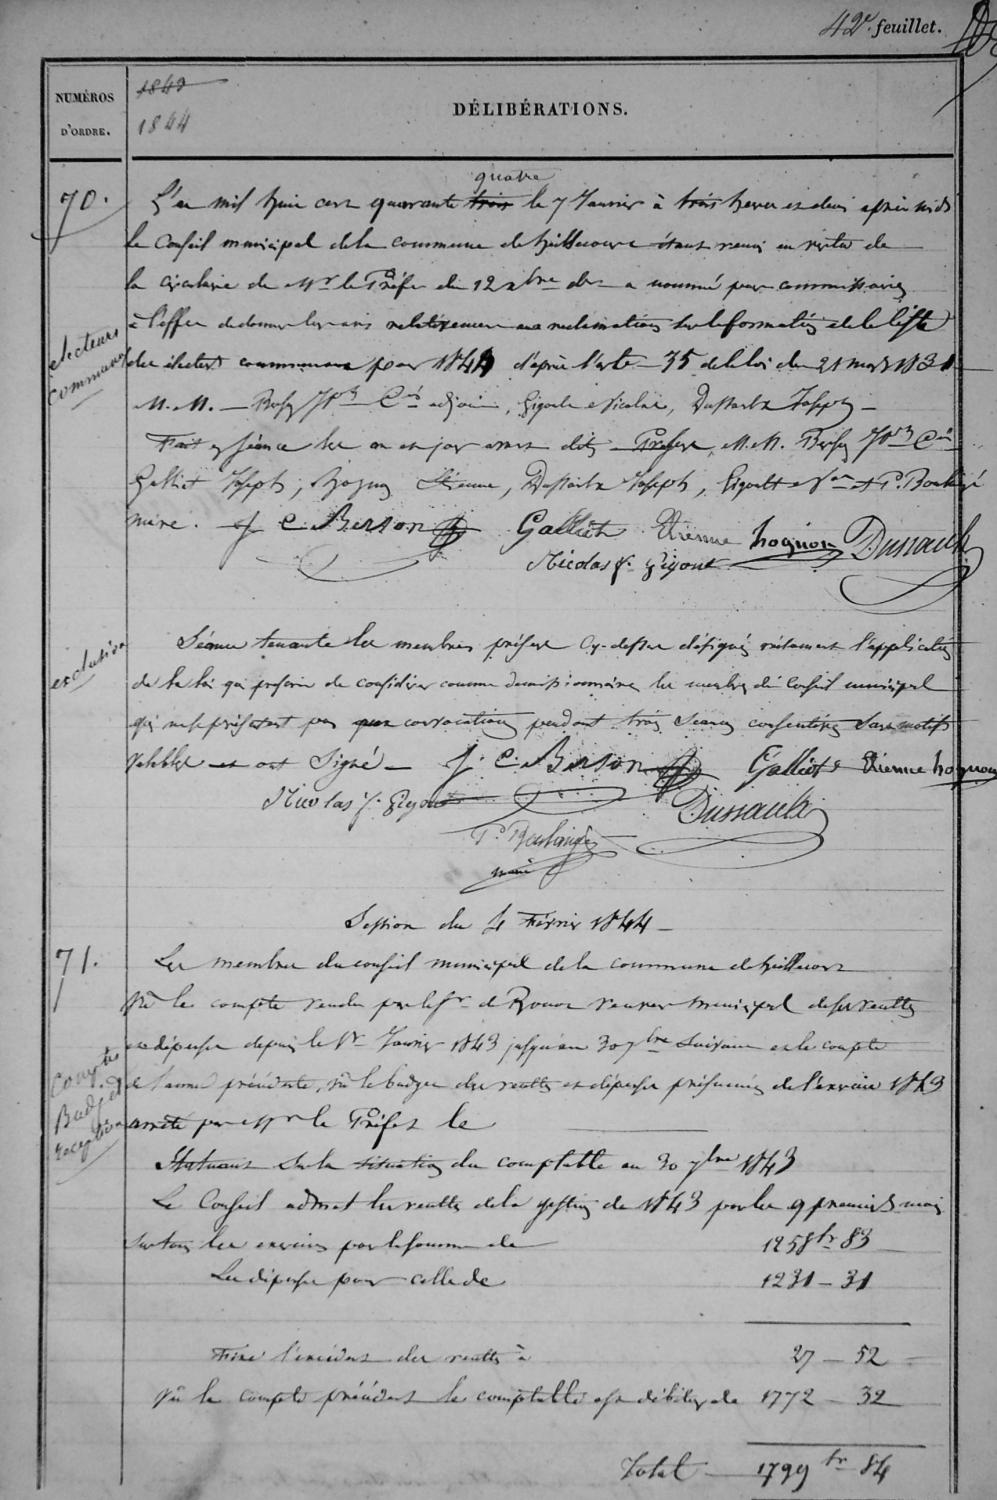 42e. feuillet.
NUMÉROS
D'ORDRE.
1843
1844
DÉLIBÉRATIONS.
quatre
70. L'an mil huit cent quarante trois le 7 Janvier à trois heures et demi après midi
le Conseil municipal de la commune de étant réuni en vertu de
la circulaire de Mr le Préfet du 12 xbre der a nommé pour commissaires
à l'effet de donner leur avis relativement aux réclamations sur la formation de la liste
électeurs
communaux
des électeurs communaux pour 1844 d'après l'arte 35 de la loi du 21 mars 1831
M.M. Cn adjoint, Gigout Nicolas, Dussault Joseph
Fait en séance les an et jour avant dits Présens, M.M. Cn
Galliot Joseph, Hognon Etienne, Dussault Joseph, Gigout et P. Boulangé
maire. J C. Berson Galliot Etienne hognon Dussault
Nicolas f. Gigout
exclusion
Séance tenante les membres présens Cy-dessus désignés réclament l'application
de la loi qui prescrit de considérer comme démissionnaires les membres du Conseil municipal
qui ne se présentent pas aux convocations pendant trois séances consécutives sans motifs
valables et ont Signé J. C. Berson Galliot Etienne hognon
Nicolas f. Gigout Dussault
P. Boulangé
maire
Session du 4 Février 1844
71. Les membres du conseil municipal de la commune de
Vu le compte rendu par le Sr receveur municipal des recettes
et dépenses depuis le 1er Janvier 1843 jusqu'au 30 7bre suivant et le compte
Compte
Budget
réception
de l'année précédente, vu le budget des recettes et dépenses présumées de l'exercice 1843
arrêté par Mr le Préfet le
Statuant sur la situation du comptable au 30 7bre 1843
Le Conseil admet les recettes de la gestion de 1843 pour les 9 premiers mois
sur tous les exercices pour la somme de 1258fr 83
Les dépenses pour celle de 1231 - 31
Fixe l'excédent des recettes à 27 - 52
Vu le compte précédent le comptable est débiteur de 1772 - 32
Total 1799fr 84